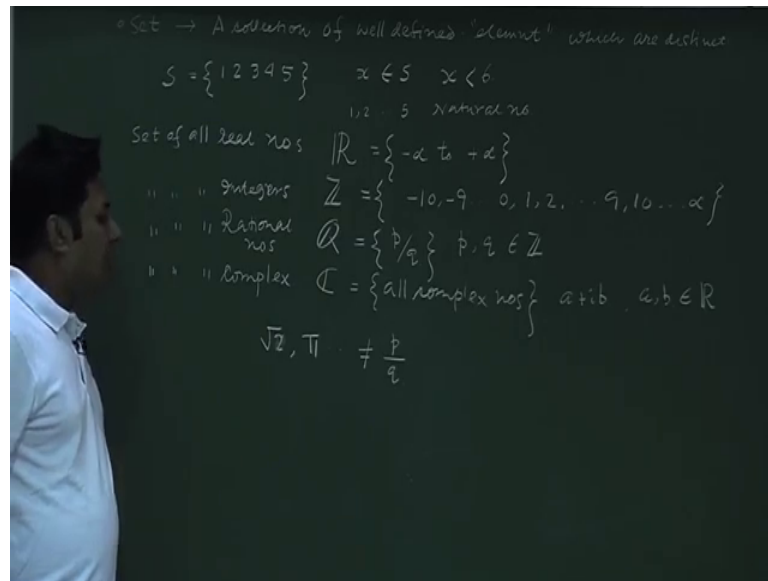 • Set → A collection of well defined "elemnt" which are distinct
S = {1 2 3 4 5} x ∈ S x < 6
1, 2 .. 5 Natural no.
Set of all real nos ℝ = {-α to +α}
" " " Integers ℤ = { -10, -9 .. 0, 1, 2, .. 9, 10 ... α}
" " " Rational nos ℚ = {p/q} p, q ∈ ℤ
" " " Complex ℂ = {all complex nos} a+ib, a, b ∈ ℝ
√2, π .. ≠ p/q